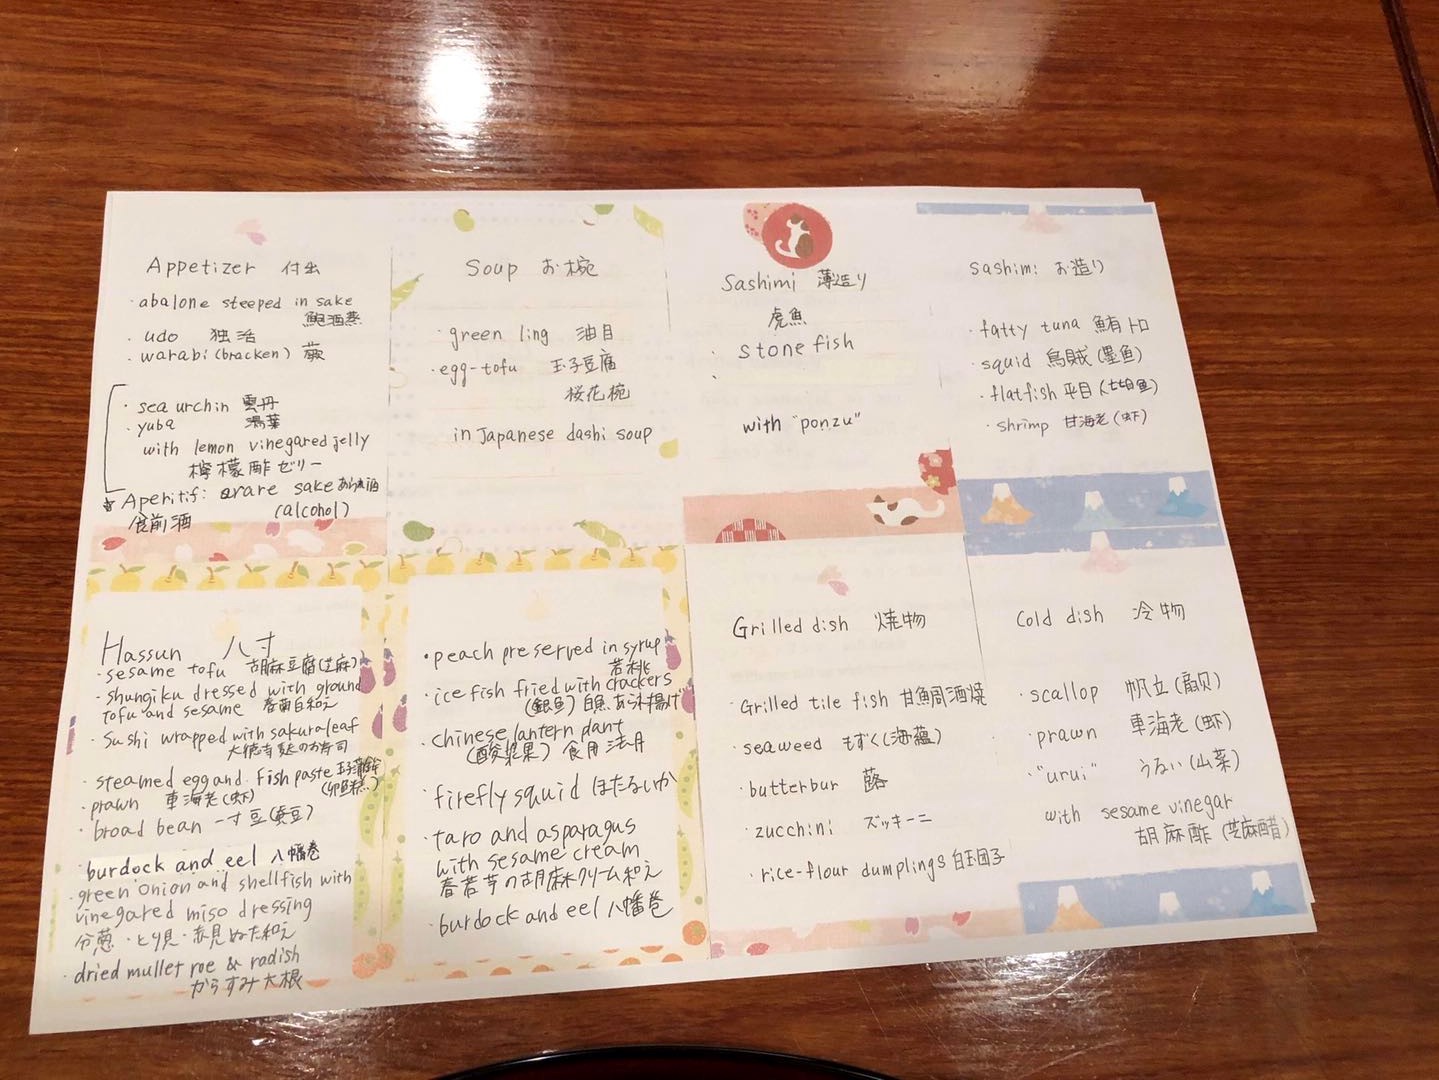 Appetizer 付出
・abalone steeped in sake
鮑酒蒸
・udo 独活
・warabi (bracken) 蕨
・sea urchin 雲丹
・yuba 湯葉
with lemon vinegared jelly
檸檬酢ゼリー
Aperitif: arare sake あられ酒
食前酒 (alcohol)
Soup お椀
・green ling 油目
・egg-tofu 玉子豆腐
桜花椀
in Japanese dashi soup
Sashimi 薄造り
虎魚
stone fish
with "ponzu"
sashimi お造り
・fatty tuna 鮪トロ
・squid 烏賊(墨魚)
・flatfish 平目
・shrimp 甘海老(虾)
Hassun 八寸
・sesame tofu 胡麻豆腐(芝麻)
・shungiku dressed with ground
tofu and sesame 春菊白和え
・Sushi wrapped with sakura leaf
の寿司
・steamed egg and fish paste
・prawn 車海老(虾)
・broad bean 一寸豆(蚕豆)
・burdock and eel 八幡巻
・green onion and shellfish with
vinegared miso dressing
分葱・とり貝・赤貝ぬた和え
・dried mullet roe & radish
からすみ大根
・peach preserved in syrup
若桃
・ice fish fried with crackers
(銀魚) 白魚あられ揚げ
・chinese lantern plant
(酸漿果) 食用法月
・firefly squid ほたるいか
・taro and asparagus
with sesame cream
の胡麻クリーム和え
・burdock and eel 八幡巻
Grilled dish 焼物
・Grilled tile fish 甘鯛酒焼
・seaweed もずく(海蘊)
・butterbur 蕗
・zucchini ズッキーニ
・rice-flour dumplings 白玉団子
Cold dish 冷物
・scallop 帆立(扇贝)
・prawn 車海老(虾)
・"urui" うるい(山菜)
with sesame vinegar
胡麻酢(芝麻醋)